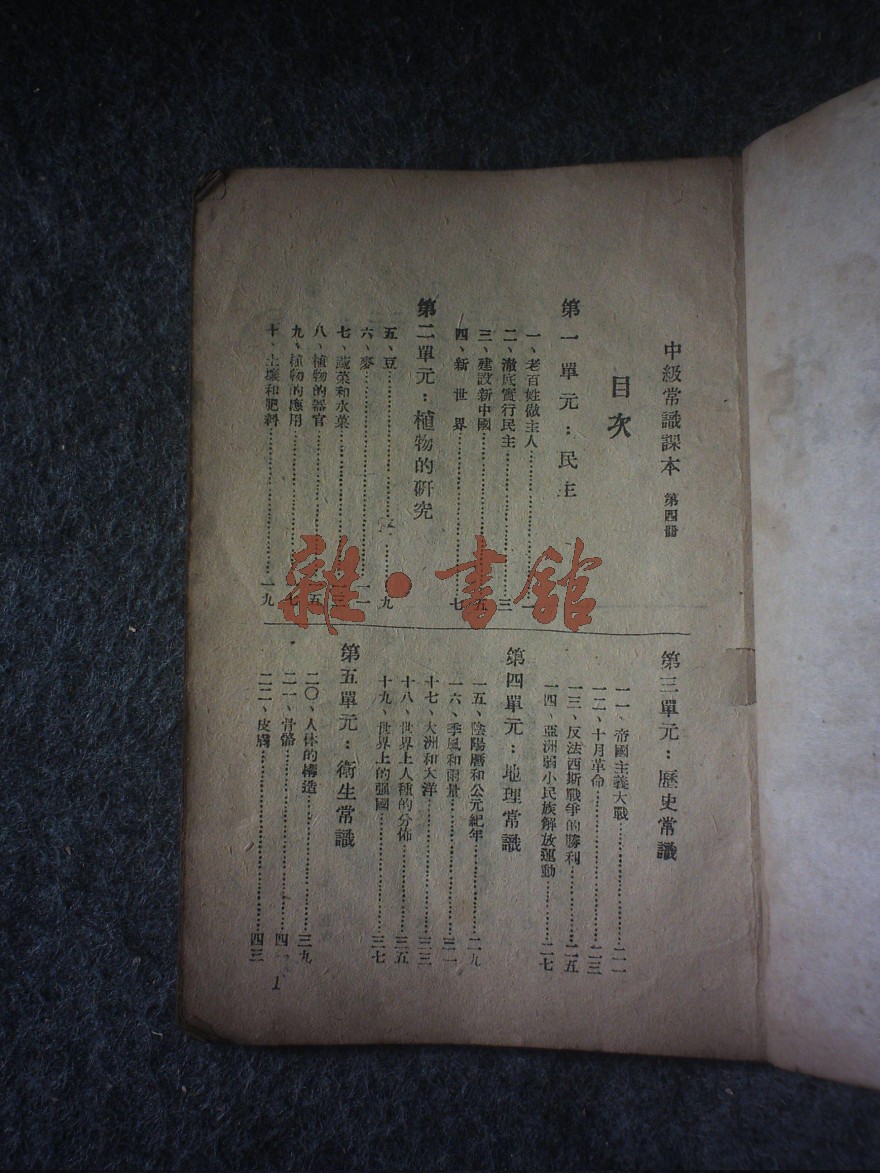 中級常識課本 第四冊
目次
第一單元：民主
一、老百姓做主人……一
二、澈底實行民主……三
三、建設新中國……五
四、新世界……七
第二單元：植物的研究
五、豆……九
六、麥……一一
七、蔬菜和水菓……一三
八、植物的器官……一五
九、植物的應用……一七
十、土壤和肥料……一九
第三單元：歷史常識
一一、帝國主義大戰……二一
一二、十月革命……二三
一三、反法西斯戰爭的勝利……二五
一四、亞洲弱小民族解放運動……二七
第四單元：地理常識
一五、陰陽曆和公元紀年……二九
一六、季風和雨量……三一
十七、大洲和大洋……三三
十八、世界上人種的分佈……三五
十九、世界上的强國……三七
第五單元：衛生常識
二〇、人体的構造……三九
二一、骨骼……四一
二二、皮膚……四三
1
雜·書館